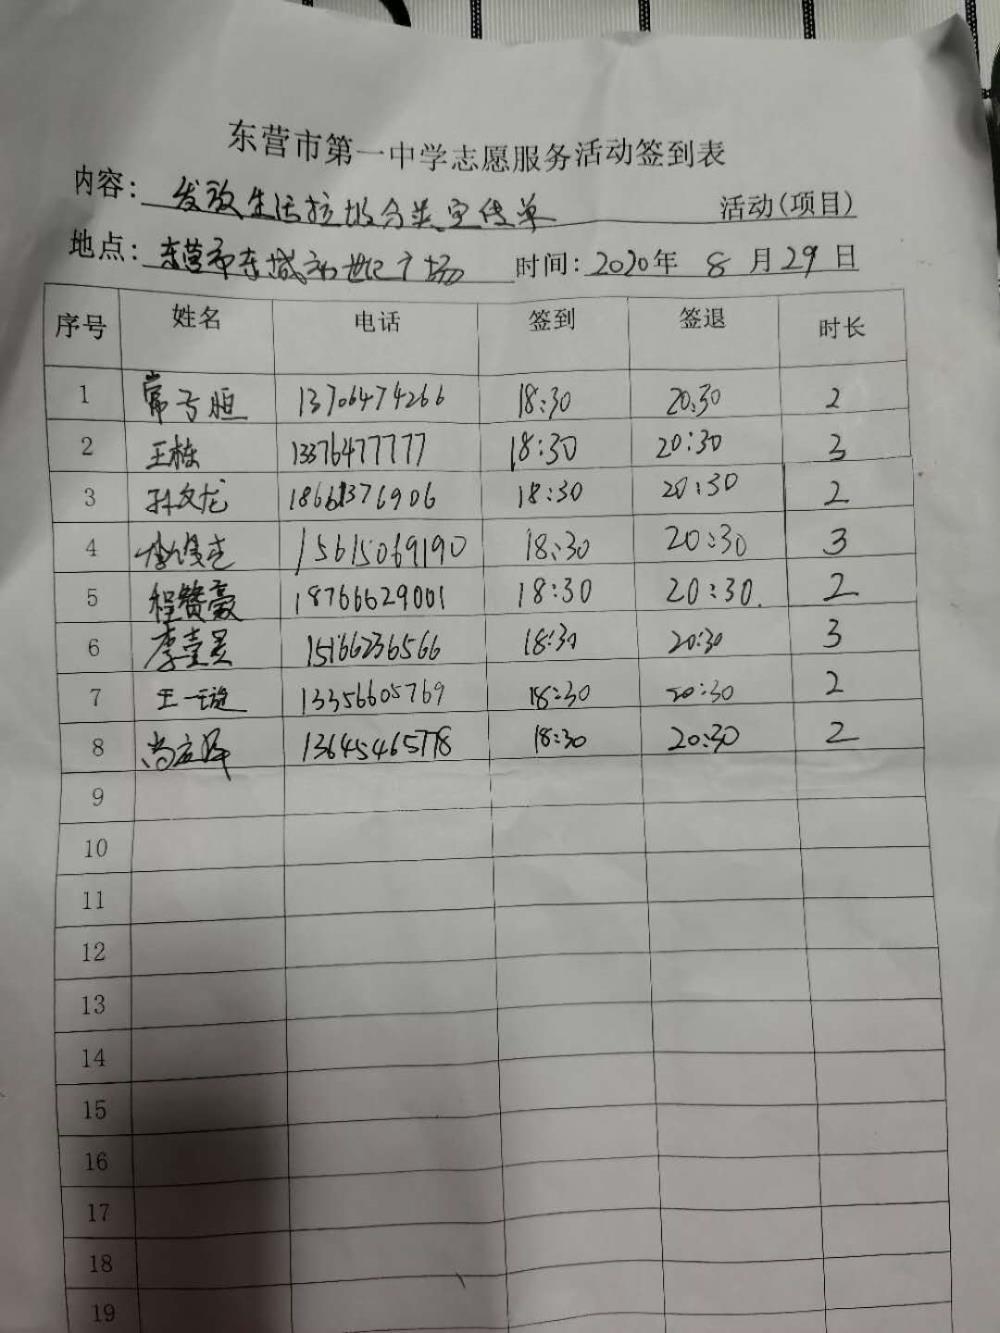 东营市第一中学志愿服务活动签到表
内容: 发放生活垃圾分类宣传单 活动(项目)
地点: 东营市东城新世纪广场 时间: 2020年 8 月 29 日
序号 姓名 电话 签到 签退 时长
1 13706474266 18:30 20:30 2
2 王栋 13376477777 18:30 20:30 3
3 孙文龙 18661376906 18:30 20:30 2
4 15615069190 18:30 20:30 3
5 程赞豪 18766629001 18:30 20:30. 2
6 李 15166236566 18:30 20:30 3
7 王一璇 13356605769 18:30 20:30 2
8 尚 13645465778 18:30 20:30 2
9
10
11
12
13
14
15
16
17
18
19